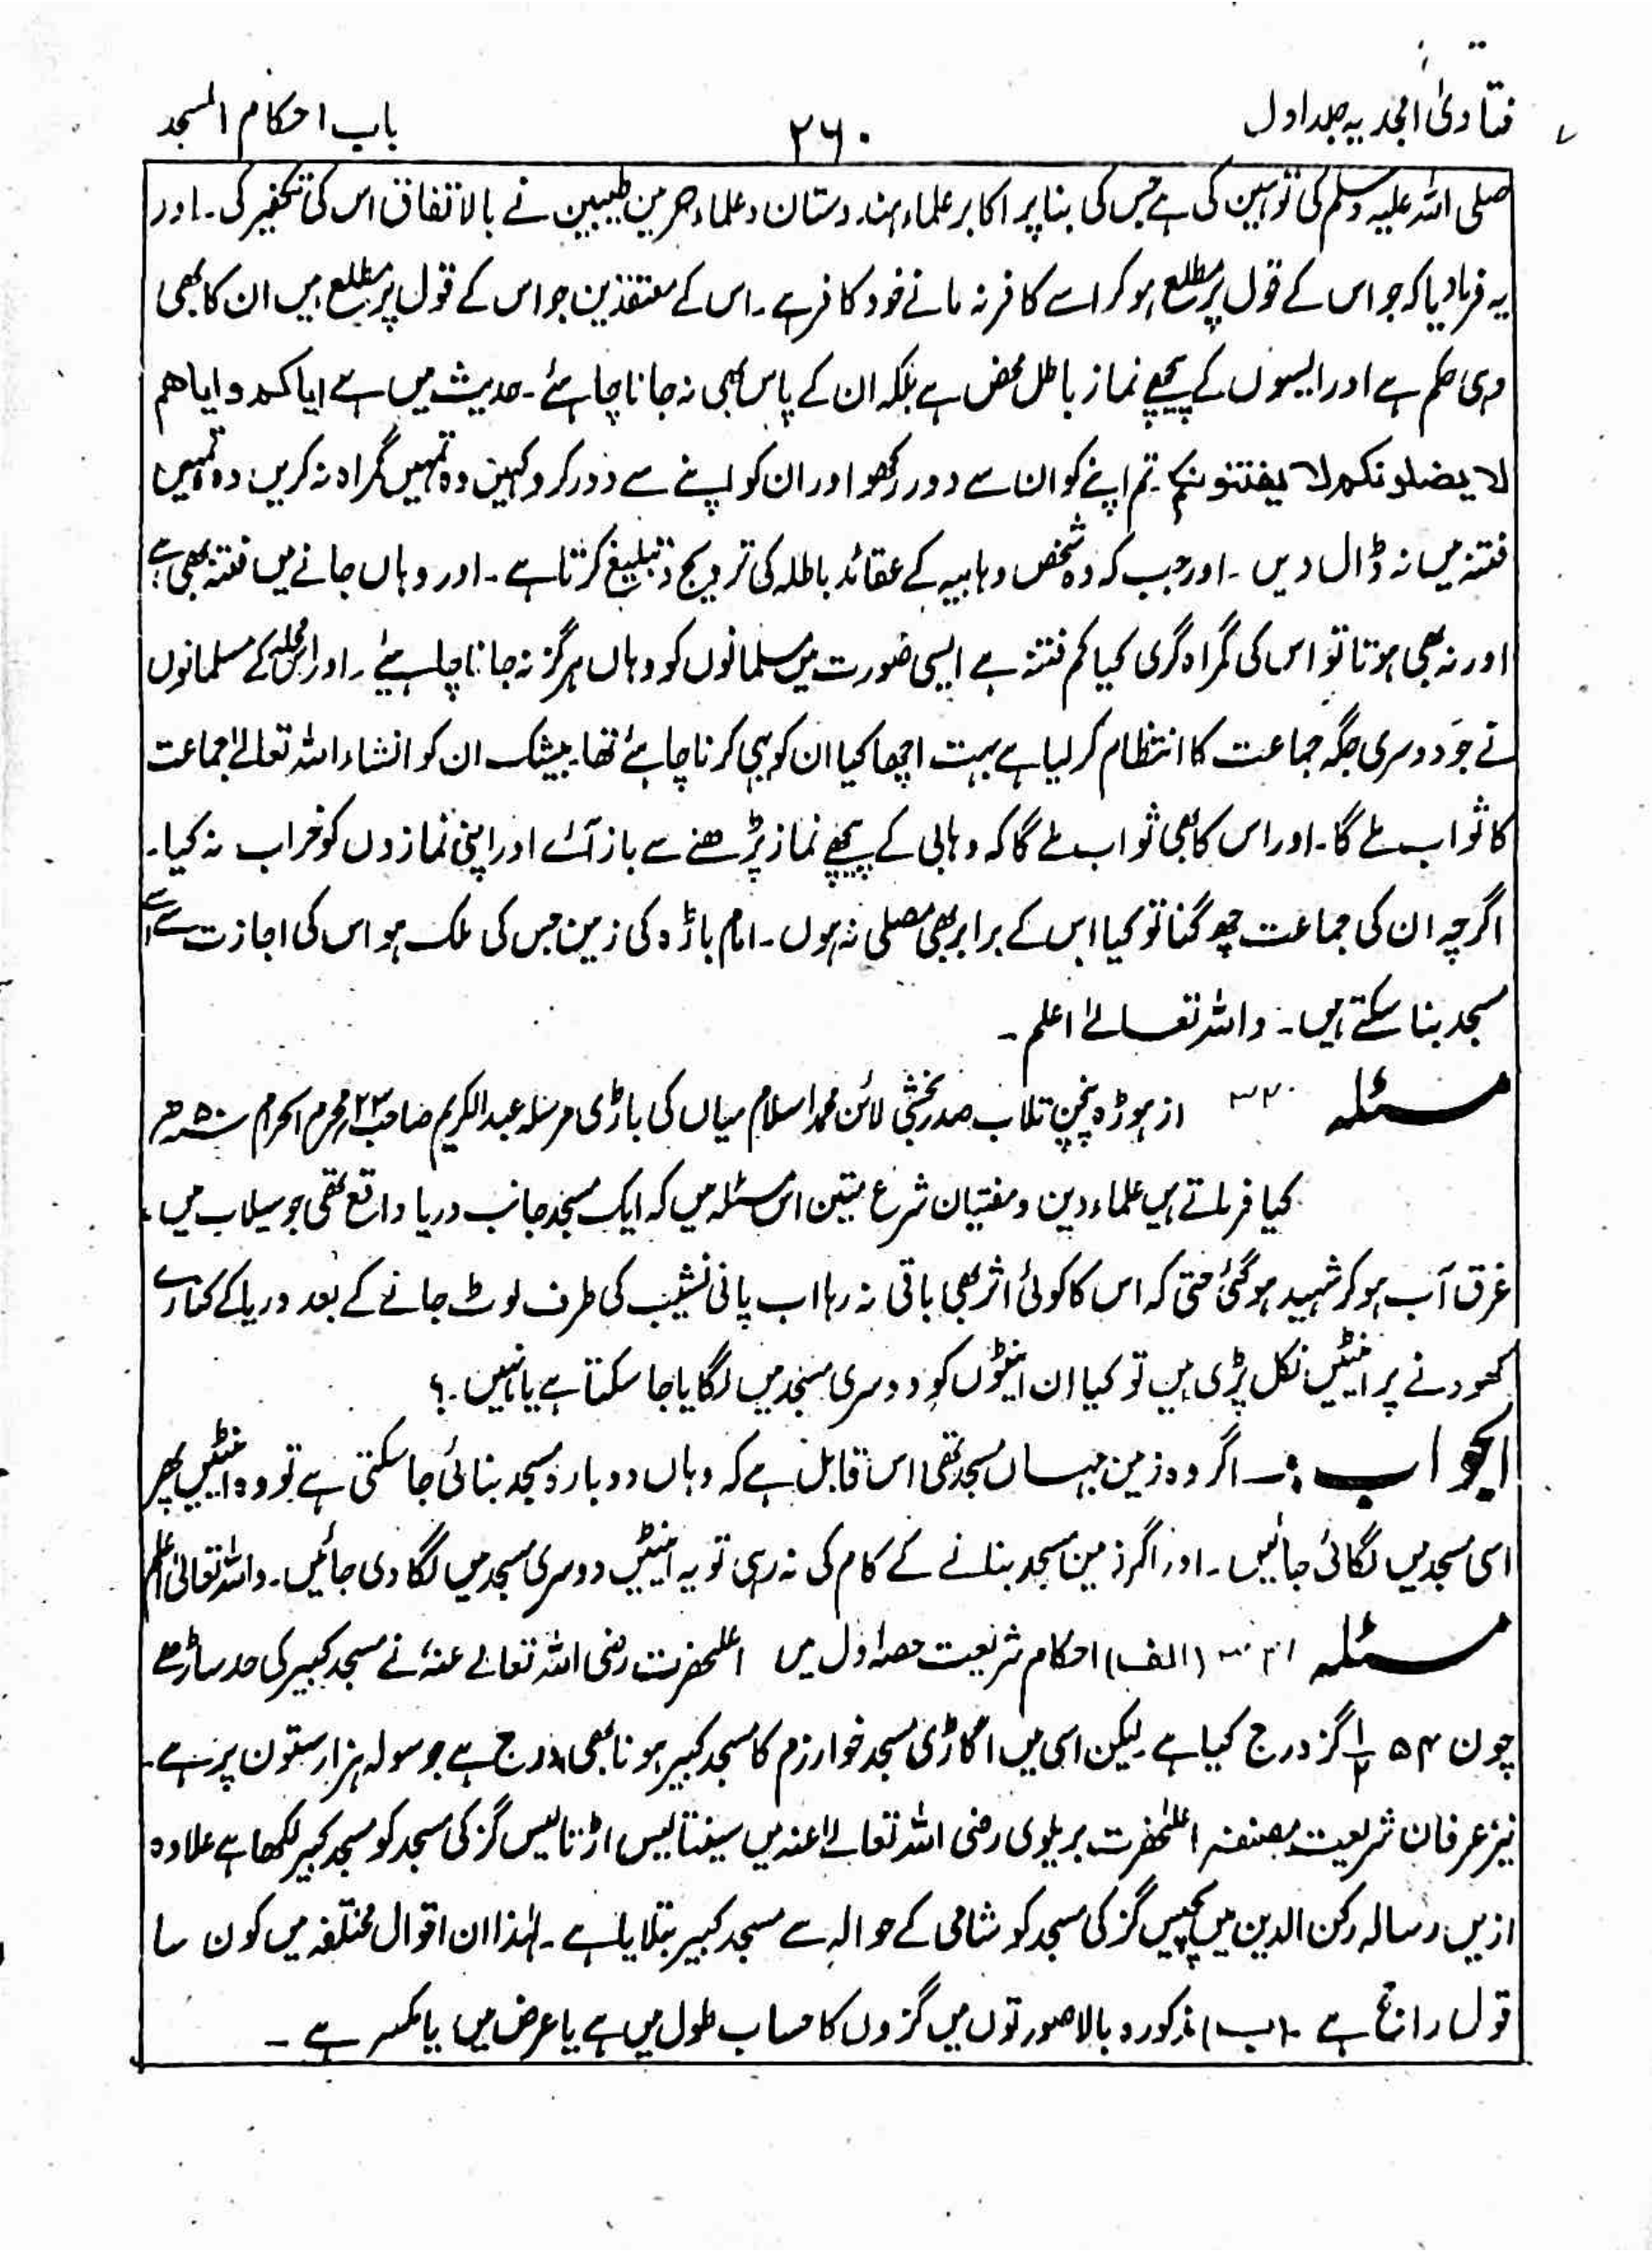 فتاویٰ امجدیہ جلد اول
۲۶۰
باب احکام المسجد
صلی اللہ علیہ وسلم کی توہین کی ہے جس کی بنا پر اکابر علماء ہندوستان و علماء حرمین طیبین نے بالاتفاق اس کی تکفیر کی۔ اور
یہ فرمادیا کہ جو اس کے قول پر مطلع ہو کر اسے کافر نہ مانے خود کافر ہے۔ اس کے معتقدین جو اس کے قول پر مطلع ہیں ان کا بھی
وہی حکم ہے اور ایسوں کے پیچھے نماز باطل محض ہے بلکہ ان کے پاس بھی نہ جانا چاہئے۔ حدیث میں ہے ایاکم و ایاھم
لا یضلونکم لا یفتنونکم۔ تم اپنے کو ان سے دور رکھو اور ان کو اپنے سے دور کرو کہیں وہ تمہیں گمراہ نہ کریں وہ تمہیں
فتنہ میں نہ ڈال دیں۔ اور جب کہ وہ شخص وہابیہ کے عقائد باطلہ کی ترویج و تبلیغ کرتا ہے۔ اور وہاں جانے میں فتنہ بھی ہے
اور نہ بھی ہوتا تو اس کی گمراہ گری کیا کم فتنہ ہے ایسی صورت میں مسلمانوں کو وہاں ہرگز نہ جانا چاہیئے۔ اور اس محلہ کے مسلمانوں
نے جو دوسری جگہ جماعت کا انتظام کر لیا ہے بہت اچھا کیا ان کو یہی کرنا چاہئے تھا۔ بیشک ان کو انشاء اللہ تعالیٰ جماعت
کا ثواب ملے گا۔ اور اس کا بھی ثواب ملے گا کہ وہابی کے پیچھے نماز پڑھنے سے باز آئے اور اپنی نمازوں کو خراب نہ کیا۔
اگرچہ ان کی جماعت چھ گنا تو کیا اس کے برابر بھی مصلی نہ ہوں۔ امام باڑہ کی زمین جس کی ملک ہو اس کی اجازت سے اسے
مسجد بنا سکتے ہیں۔ واللہ تعالیٰ اعلم۔
مسئلہ ۳۳۰ از ہوڑہ پنچن تلاب صدر بخشی لائن محمد اسلام میاں کی باڑی مرسلہ عبدالکریم صاحب ۲۳ محرم الحرام ۵۰ھ
کیا فرماتے ہیں علماء دین و مفتیان شرع متین اس مسئلہ میں کہ ایک مسجد جانب دریا واقع تھی جو سیلاب میں
غرق آب ہو کر شہید ہو گئی حتی کہ اس کا کوئی اثر بھی باقی نہ رہا اب پانی نشیب کی طرف لوٹ جانے کے بعد دریا کے کنارے
کھودنے پر اینٹیں نکل پڑی ہیں تو کیا ان اینٹوں کو دوسری مسجد میں لگایا جا سکتا ہے یا نہیں۔؟
الجواب :۔ اگر وہ زمین جہاں مسجد تھی اس قابل ہے کہ وہاں دوبارہ مسجد بنائی جا سکتی ہے تو وہ اینٹیں پھر
اسی مسجد میں لگائی جائیں۔ اور اگر زمین مسجد بنانے کے کام کی نہ رہی تو یہ اینٹیں دوسری مسجد میں لگا دی جائیں۔ واللہ تعالیٰ اعلم
مسئلہ ۳۳۱ (الف) احکام شریعت حصہ اول میں اعلحضرت رضی اللہ تعالے عنہ نے مسجد کبیر کی حد ساڑھے
چون ۵۴ ۱/۲ گز درج کیا ہے۔ لیکن اسی میں اگاڑی مسجد خوارزم کا مسجد کبیر ہونا بھی درج ہے جو سولہ ہزار ستون پر ہے۔
نیز عرفان شریعت مصنفہ اعلٰحضرت بریلوی رضی اللہ تعالے اعنہ میں سینتالیس اڑتالیس گز کی مسجد کو مسجد کبیر لکھا ہے علاوہ
ازیں رسالہ رکن الدین میں پچیس گز کی مسجد کو شامی کے حوالہ سے مسجد کبیر بتلایا ہے۔ لہٰذا ان اقوال مختلفہ میں کون سا
قول راجح ہے۔ (ب) مذکورہ بالا صورتوں میں گزوں کا حساب طول میں ہے یا عرض میں یا مکسر ہے۔